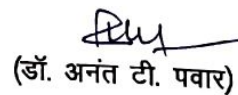 (डॉ. अनंत टी. पवार)